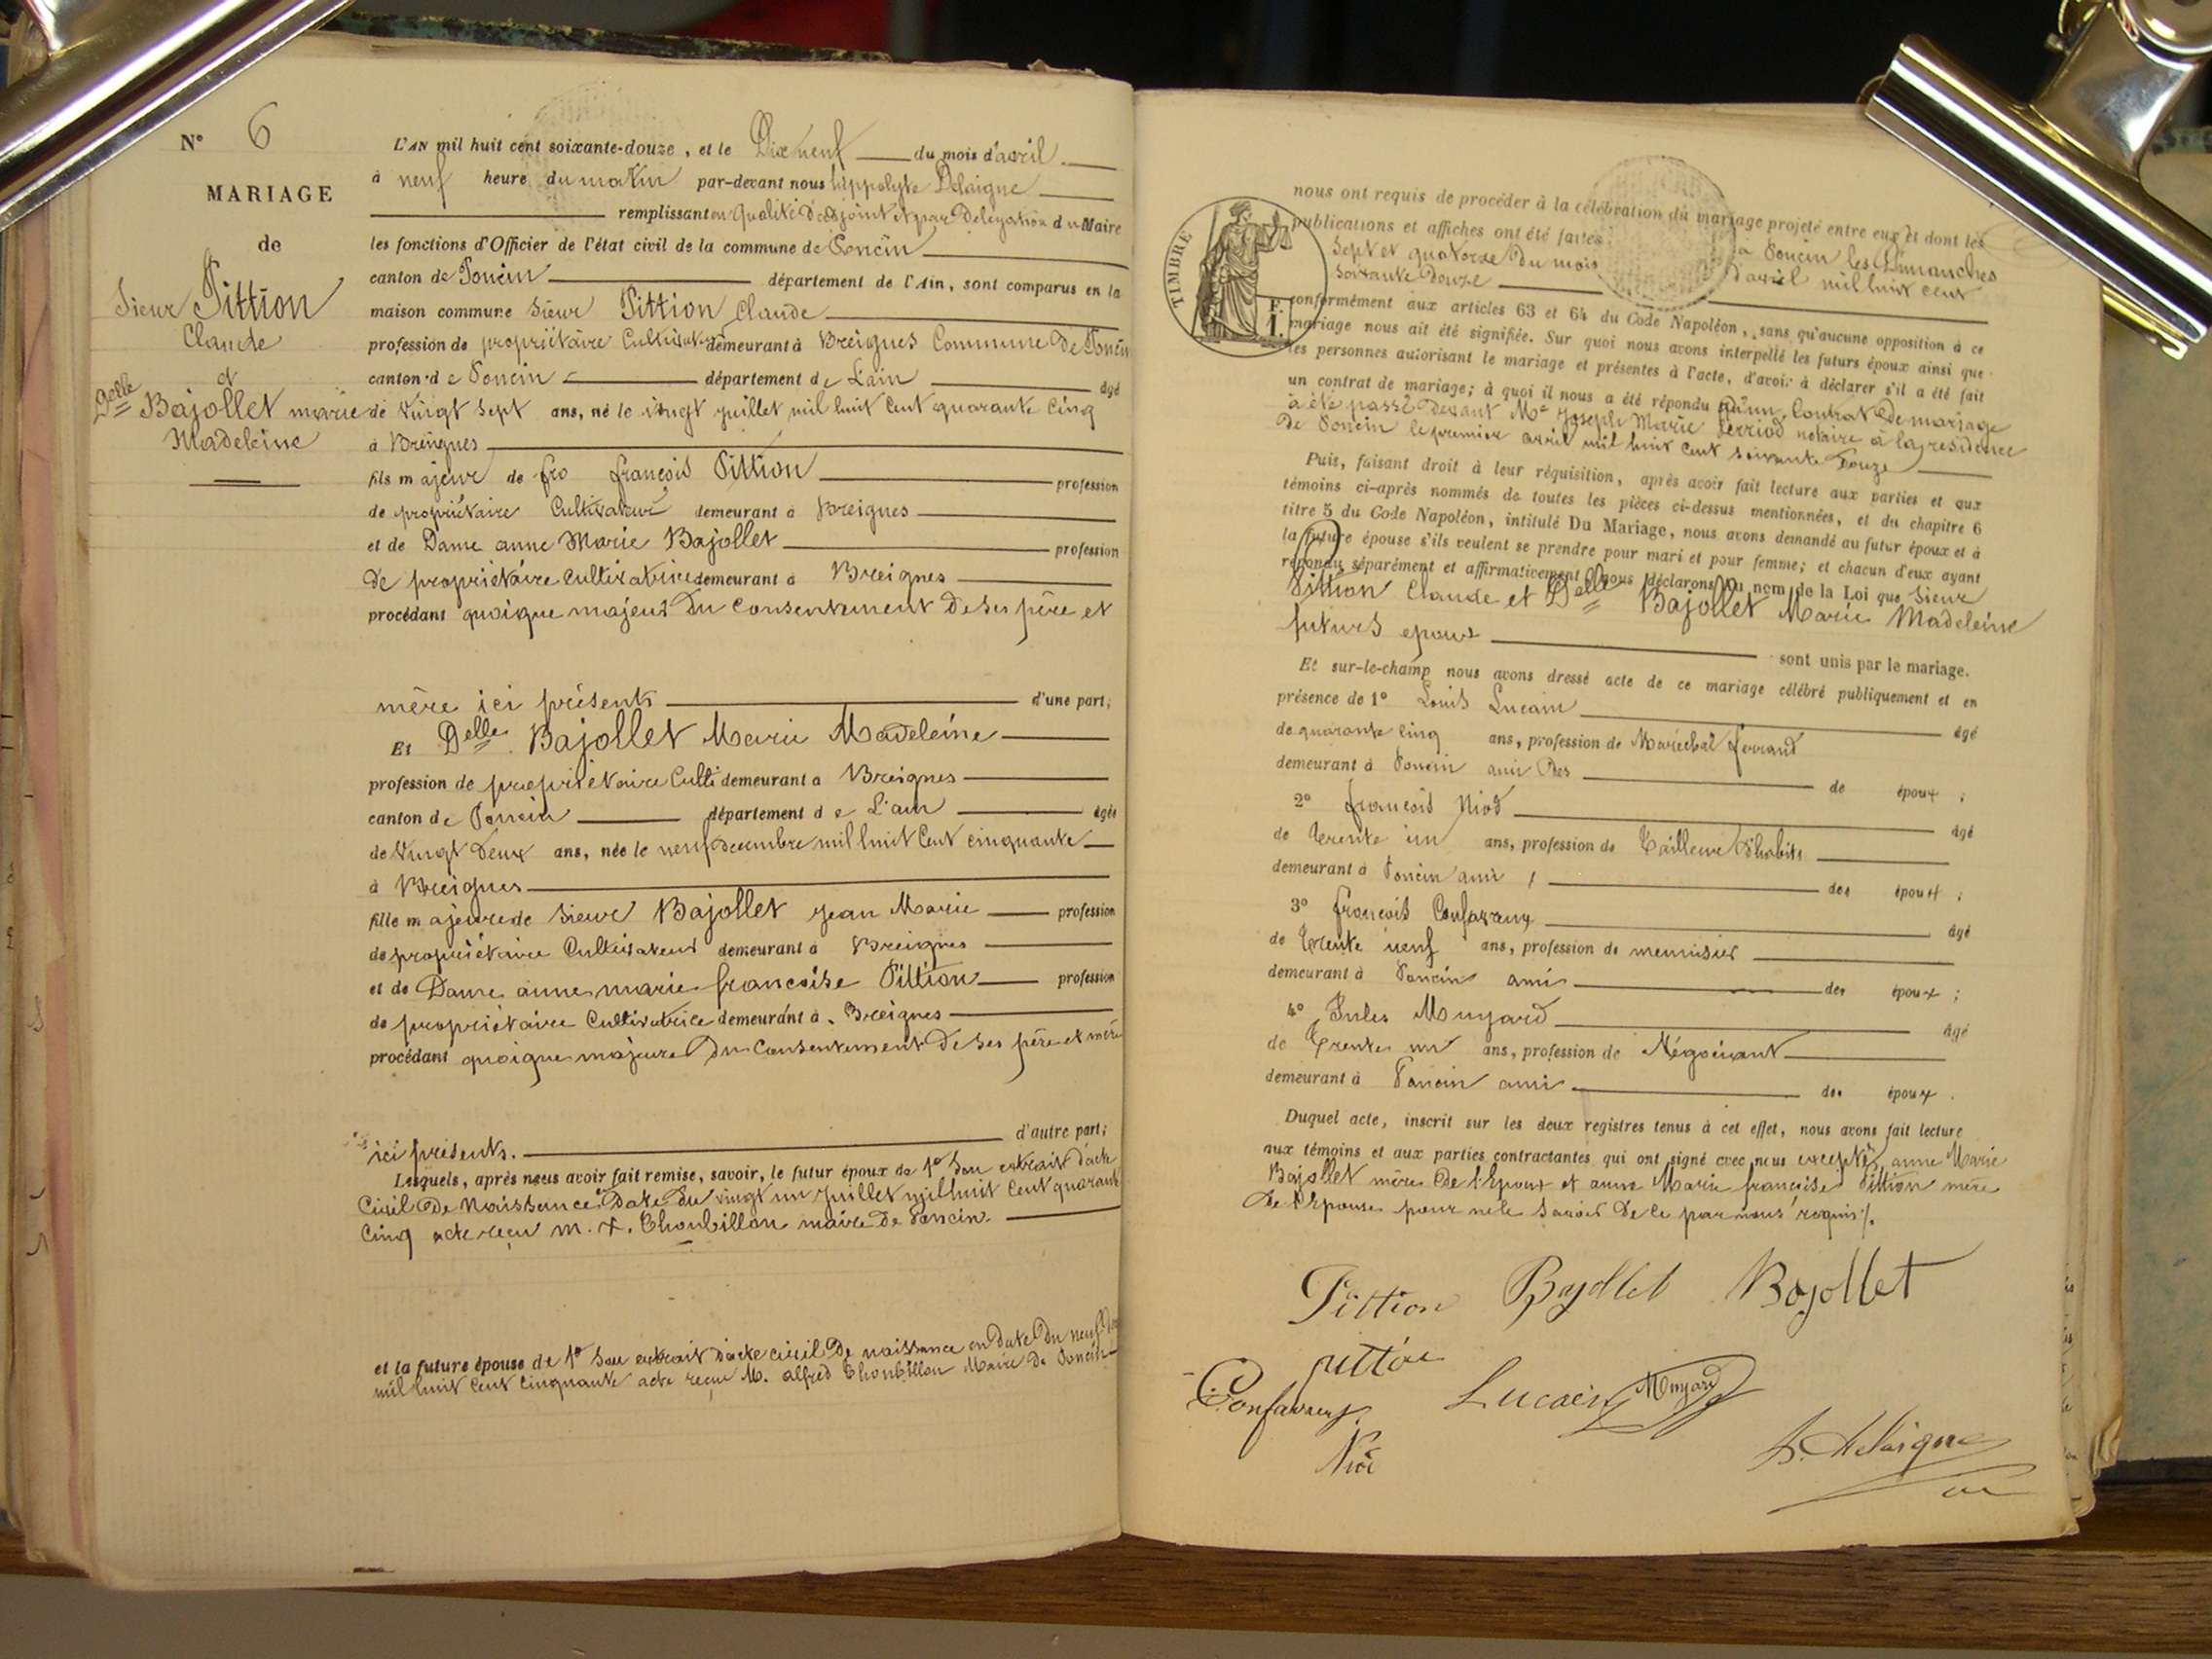 N° 6
MARIAGE
de
Sieur Pittion
Claude
et
Delle Bajollet marie
Madeleine
L'AN mil huit cent soixante-douze, et le Dix neuf du mois d'avril
à neuf heure du matin par-devant nous hippolyte Delaigue
remplissant en qualité d'adjoint et par délégation du Maire
les fonctions d'Officier de l'état civil de la commune de Poncin
canton de Poncin département de l'Ain, sont comparus en la
maison commune Sieur Pittion Claude
profession de propriétaire Cultivateur demeurant à Breignes Commune de Poncin
canton de Poncin département de L'ain âgé
de vingt sept ans, né le vingt juillet mil huit cent quarante cinq
à Breignes
fils majeur de fro françois Pittion profession
de propriétaire Cultivateur demeurant à Breignes
et de Dame anne Marie Bajollet profession
de propriétaire cultivatrice demeurant à Breignes
procédant quoique majeur du consentement de ses père et
mère ici présents d'une part;
Et Delle Bajollet Marie Madeleine
profession de propriétaire Culti demeurant à Breignes
canton de Poncin département de L'ain âgée
de vingt deux ans, née le neuf decembre mil huit cent cinquante
à Breignes
fille majeure de Sieur Bajollet jean Marie profession
de propriétaire Cultivateur demeurant à Breignes
et de Dame anne marie francoise Pittion profession
de propriétaire Cultivatrice demeurant à Breignes
procédant quoique majeure du consentement de ses père et mère
ici présents. d'autre part;
Lesquels, après nous avoir fait remise, savoir, le futur époux de 1° Son extrait d'acte
civil de Naissance Date du vingt un juillet mil huit cent quarante
cinq acte reçu M. A. Choubillon maire de Poncin.
et la future épouse de 1° Son extrait d'acte civil de naissance en date du neuf
mil huit cent cinquante acte reçu M. alfred Choubillon Maire de Poncin
TIMBRE
F.
1.
nous ont requis de procéder à la célébration du mariage projeté entre eux et dont les
publications et affiches ont été faites à Poncin les Dimanches
Sept et quatorze du mois d'avril mil huit cent
soixante douze
conformément aux articles 63 et 64 du Code Napoléon, sans qu'aucune opposition à ce
mariage nous ait été signifiée. Sur quoi nous avons interpellé les futurs époux ainsi que
les personnes autorisant le mariage et présentes à l'acte, d'avoir à déclarer s'il a été fait
un contrat de mariage; à quoi il nous a été répondu qu'un Contrat de mariage
a été passé devant Me Joseph Marie notaire à la résidence
de Poncin le premier avril mil huit cent soixante douze
Puis, faisant droit à leur réquisition, après avoir fait lecture aux parties et aux
témoins ci-après nommés de toutes les pièces ci-dessus mentionnées, et du chapitre 6
titre 5 du Code Napoléon, intitulé Du Mariage, nous avons demandé au futur époux et à
la future épouse s'ils veulent se prendre pour mari et pour femme; et chacun d'eux ayant
répondu séparément et affirmativement nous déclarons au nom de la Loi que Sieur
Pittion Claude et Delle Bajollet Marie Madeleine
futurs epoux sont unis par le mariage.
Et sur-le-champ nous avons dressé acte de ce mariage célébré publiquement et en
présence de 1° Louis Lucain âgé
de quarante cinq ans, profession de Maréchal ferrand
demeurant à Poncin ami des de époux;
2° françois Niod âgé
de trente un ans, profession de Tailleur d'habits
demeurant à Poncin ami des époux;
3° françois Confavreux âgé
de trente neuf ans, profession de menuisier
demeurant à Poncin ami des époux;
4° Jules Muyard âgé
de trente un ans, profession de Négociant
demeurant à Poncin ami des époux.
Duquel acte, inscrit sur les deux registres tenus à cet effet, nous avons fait lecture
aux témoins et aux parties contractantes qui ont signé avec nous exceptés anne Marie
Bajollet mère de l'Epoux et anne Marie françoise Pittion mère
de l'Epouse pour ne le savoir de ce par nous requis.
Pittion Bajollet Bajollet
pittion
Confavreux Lucain Muyard
Niod
h. Delaigue